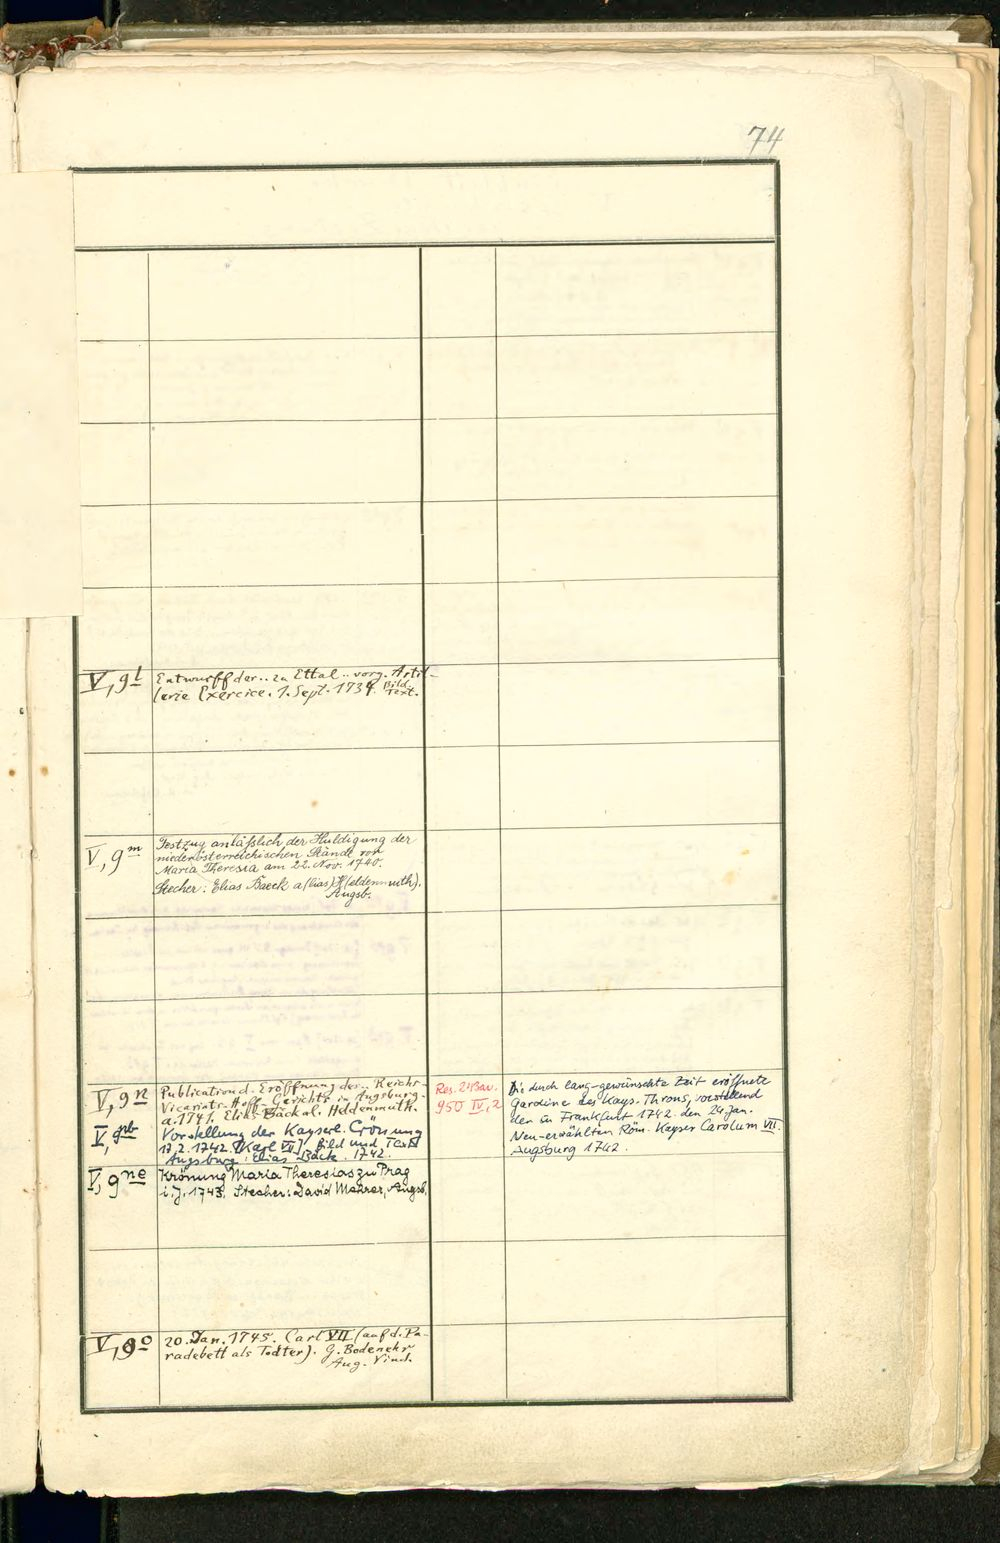 74
V, 9 l
Entwurff der .. zu Ettal .. vorg. Artil-
lerie Exercice. 1. Sept. 1739. Bild
Text.
V, 9 m
Festzug anläßlich der Huldigung der
niederösterreichischen Stände vor
Maria Theresia am 22. Nov. 1740.
Stecher: Elias Baeck a(lias) H(eldenmuth).
Augsb.
V, 9 n
Publication d. Eröffnung der .. Reichs-
Vicariats-Hoff-Gerichts in Augsburg
a. 1741. Elias Bäck al. Heldenmuth.
V, 9 nb
Vorstellung der Kayserl. Crönung
12.2.1742 [Karl VII] Bild und Text
Augsburg: Elias Bäck. 1742.
V, 9 nc
Krönung Maria Theresias zu Prag
i. J. 1743. Stecher: David Mehrer, Augsb.
V, 9 o
20. Jan. 1745. Carl VII (auf d. Pa-
radebett als Todter). G. Bodenehr
Aug. Vind.
Res. 2° Bav.
950 IV, 2
Die durch lang-gewünschte Zeit eröffnete
Gardine des Kays. Throns, vorstellend
den in Frankfurt 1742. den 24. Jan.
Neu-erwählten Röm. Keyser Carolum VII.
Augsburg 1742.